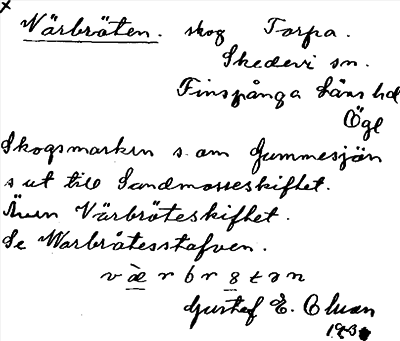 x
Värbråten. skog Torpa.
Skedevi sn.
Finspånga läns hd
Ögl
Skogsmarken s. om Gummesjön
s ut till Sandmosseskiftet.
Även Värbråteskiftet.
Se Warbråtesstafven.
v æ r b r 8 t ə n
Gustaf E.
193